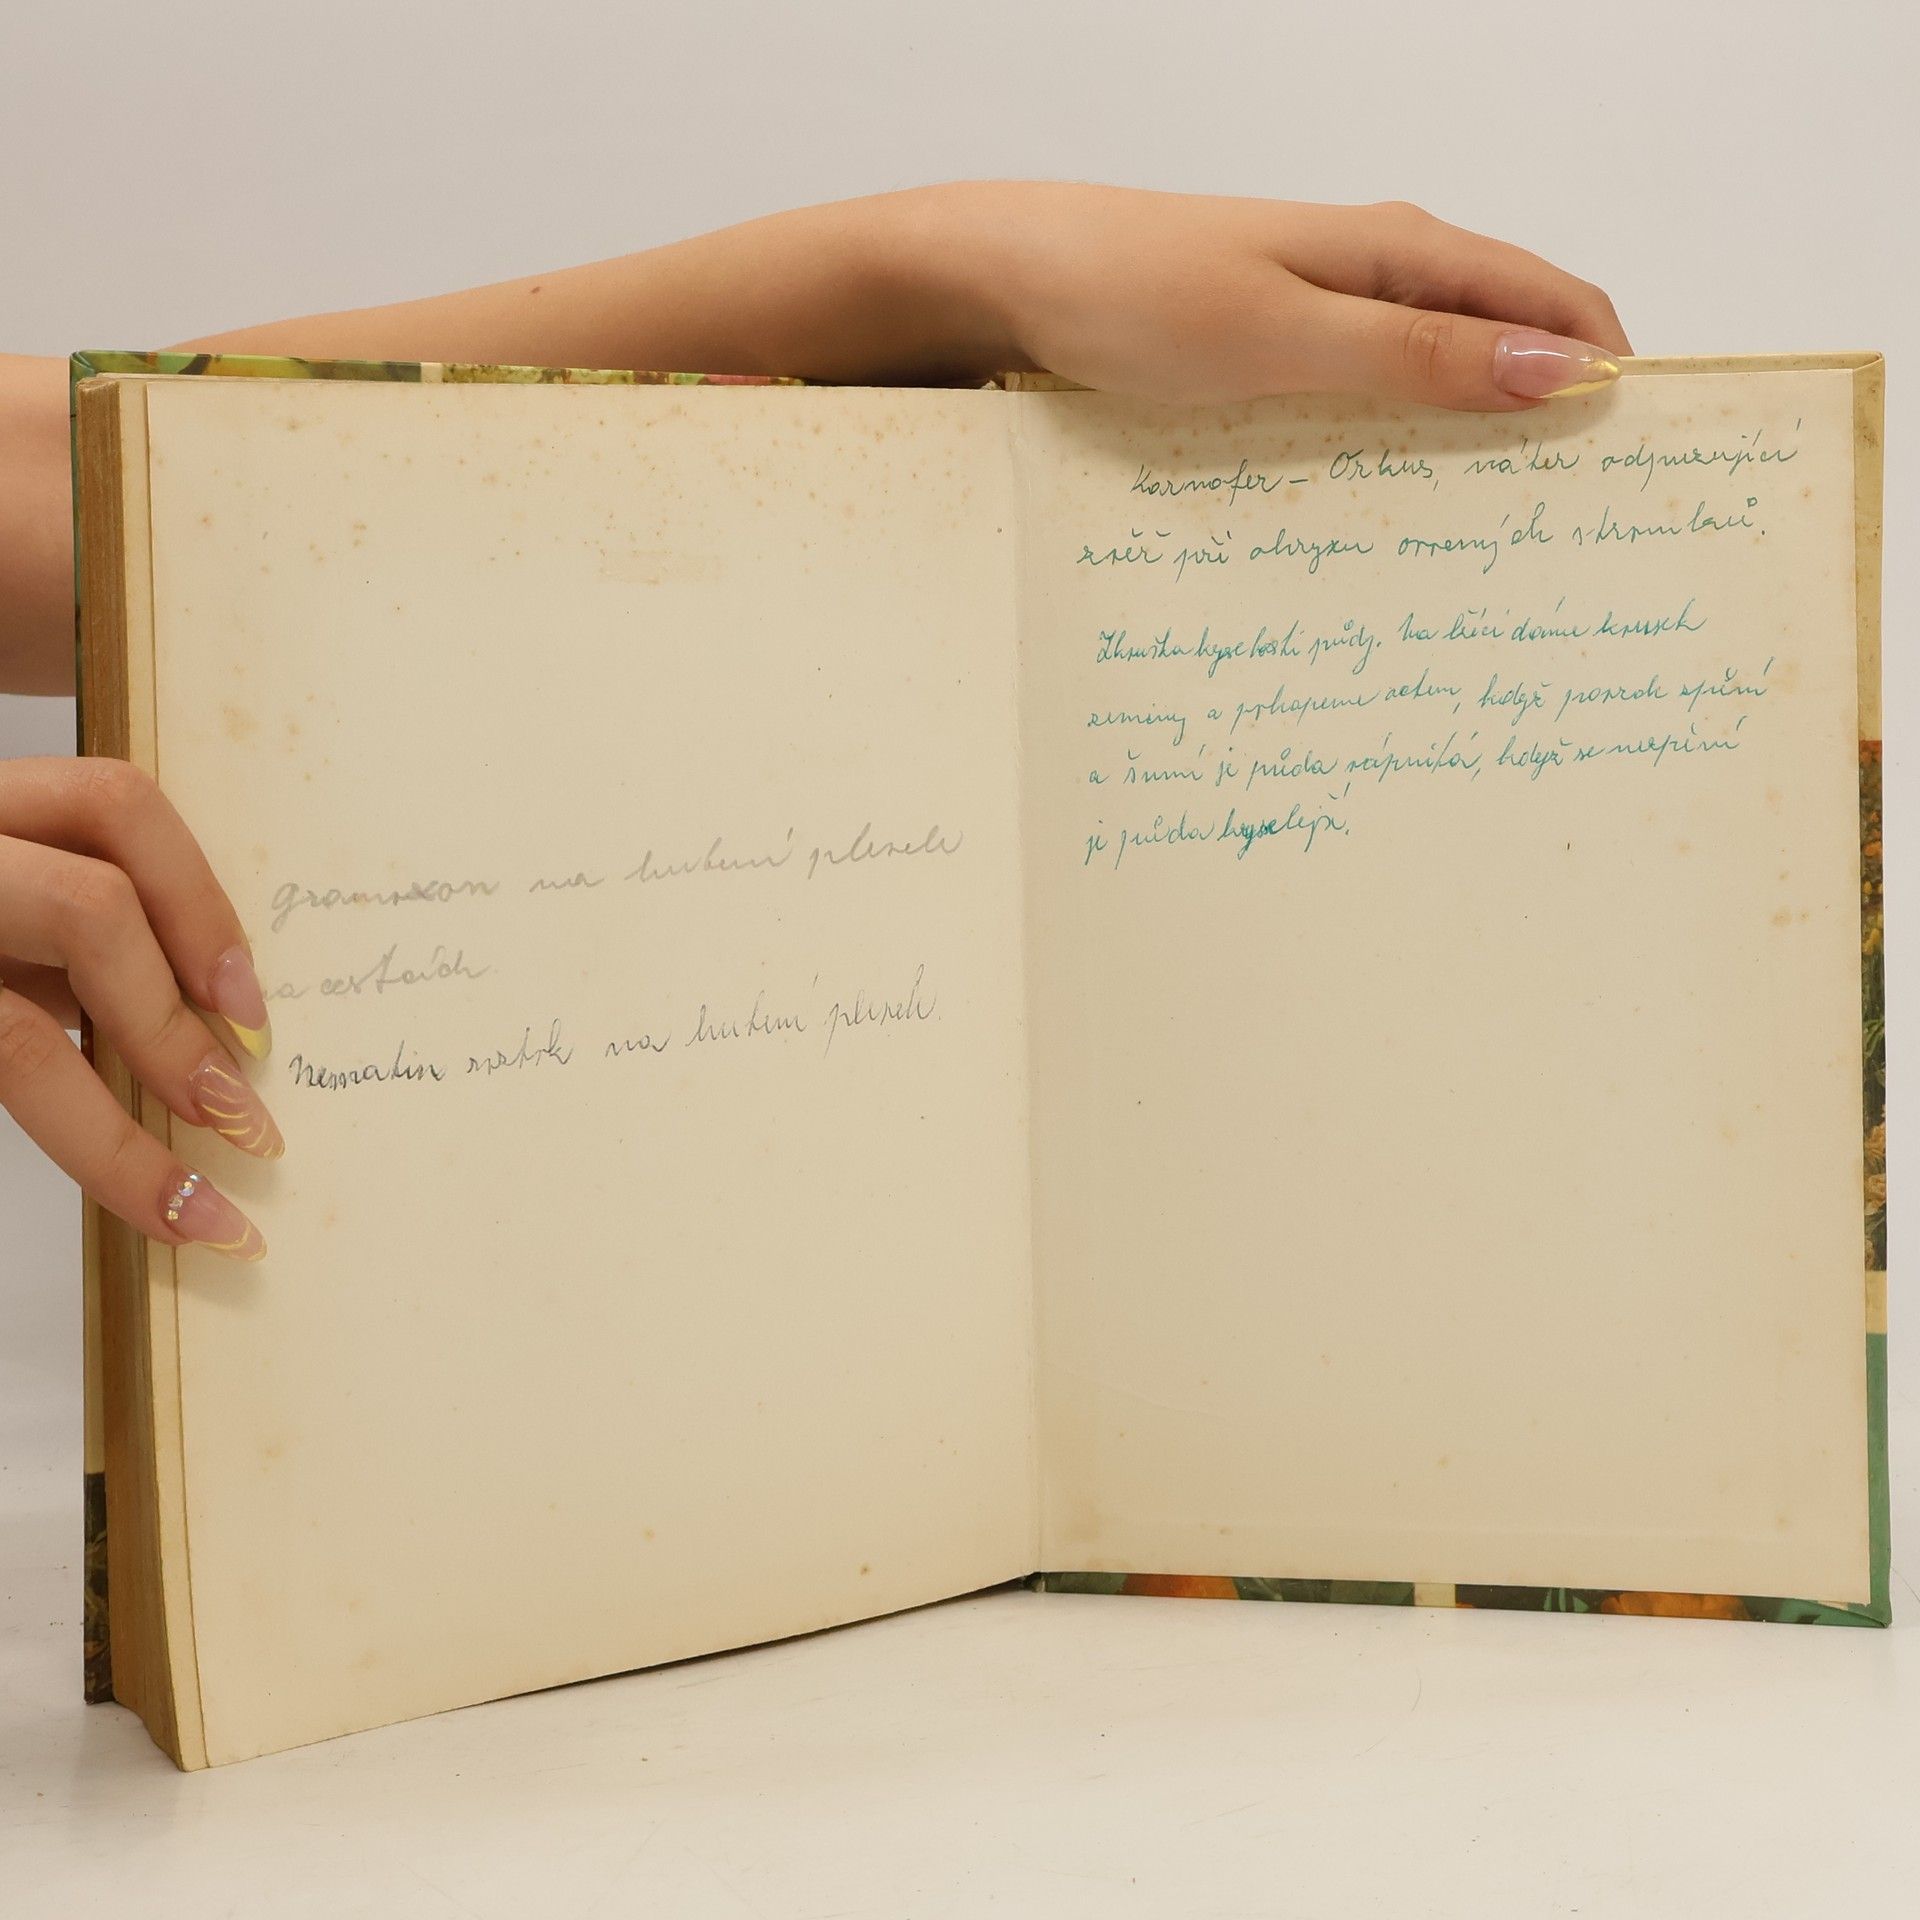 Gramoxon na hubení plevele
na cestách
Nematin roztok na hubení plevele
Karnofer – Orkus, nátěr odpuzující
zvěř při okryzu ovocných stromků.
Zkouška kyselosti půdy. Na lžíci dáme kousek
zeminy a pokapeme octem, když povrch zpění
a šumí je půda vápnitá, když se nezpění
je půda kyselejší.